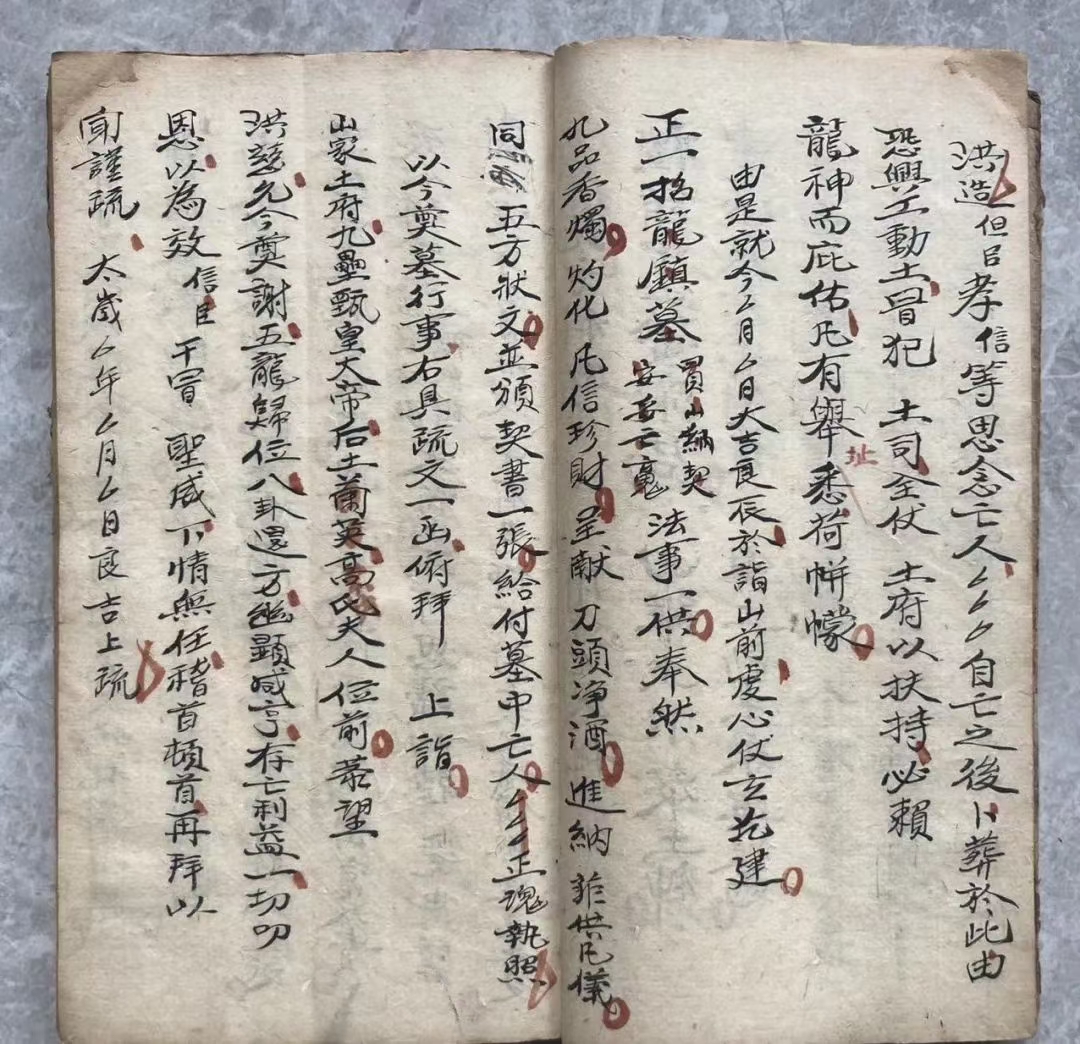 洪造但臣孝信等思念亡人厶厶自亡之後卜葬於此由
恐興工動土冒犯 土司全仗 土府以扶持必賴
龍神而庇佑凡有舉悉荷帡幪
址
由是就今厶月厶日大吉良辰於詣山前虔心仗玄苑建
正一招龍鎮墓買山納契安岳亡魂法事一供奉然
九品香燭灼化凡信珍財呈献刀頭净酒進納 供凡儀
同 五方狀文並頒契書一張給付墓中亡人厶厶正魂執照
以今奠墓行事右具疏文一函俯拜 上詣
山家土府九壘甄皇大帝后土蘭英高氏夫人位前恭望
洪慈允今奠謝五龍歸位八卦還方 顯咸亨存亡利益一切叨
恩以為效信臣干冒 聖威下情無任稽首頓首再拜以
闻謹疏 太歲厶年厶月厶日良吉上疏